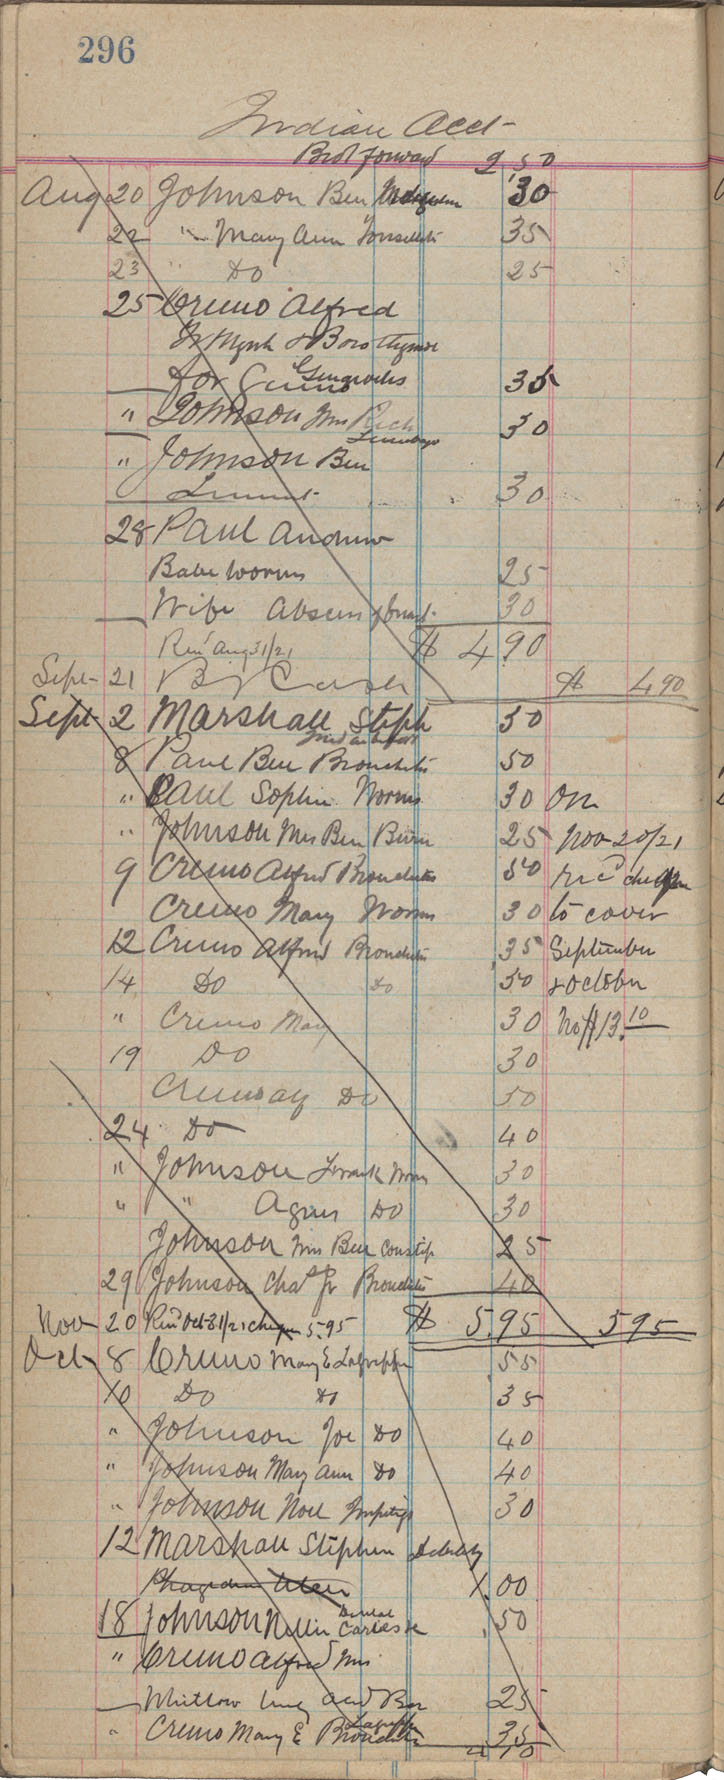 296
Indian Acct
Brot forward 2,50
Aug 20 Johnson Ben 30
22 " Mary Ann Tonsillitis 35
23 " Do 25
25 Cremo Alfred
for 35
" Johnson Mrs Rich Lumbago 30
" Johnson Ben
Liniment 30
28 Paul Andrew
Babe worms 25
Wife Abscess breast 30
Rend Aug 31/21 $ 4.90
Sept 21 By Cash $ 4 90
Sept 2 Marshall Steph 30
8 Paul Ben Bronchitis 50
" Paul Sophie Worms 30 On
" Johnson Mrs Ben Burn 25 Nov 20/21
9 Cremo Alfred Bronchitis 50 recd cheque
Cremo Mary Worms 30 to cover
12 Cremo Alfred Bronchitis 35 September
14 Do Do 50 & October
" Cremo Mary 30 13.10
19 Do 30
Cremo Alf Do 50
24 Do 40
" Johnson Frank Worms 30
" " Agnes Do 30
Johnson Mrs Ben Constip 25
29 Johnson Chas Jr Bronchitis 40
Nov 20 Rend Oct 31/21 cheque 5.95 $ 5.95 5 95
Oct 8 Cremo Mary E Lagrippe 55
10 Do Do 35
" Johnson Joe Do 40
" Johnson Mary Ann Do 40
" Johnson Noel Impetigo 30
12 Marshall Stephen Debility
1.00
18 Johnson Nellie Dental Caries 50
" Cremo Alfred Mrs
Whitlow 25
" Cremo Mary E Lagrippe Bronchitis 35